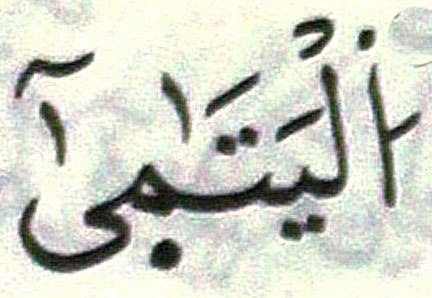 اُ۬لْيَتَٰم۪ىٰٓ